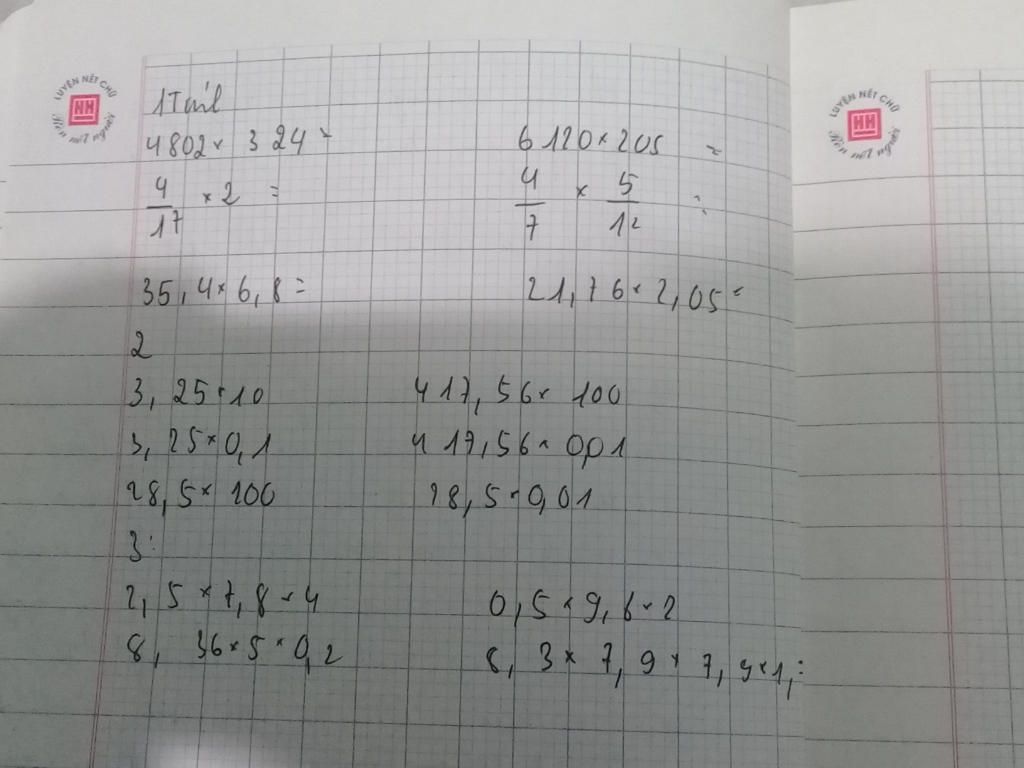 LUYỆN NÉT CHỮ
NH
Rèn nết người
LUYỆN NÉT CHỮ
NH
Rèn nết người
1 Tính
4802 × 324 = 6120 × 205 =
4/17 × 2 = 4/7 × 5/12 =
35,4 × 6,8 = 21,76 × 2,05 =
2
3,25 × 10 417,56 × 100
3,25 × 0,1 417,56 × 0,01
28,5 × 100 28,5 × 0,01
3:
2,5 × 7,8 × 4 0,5 × 9,6 × 2
8,36 × 5 × 0,2 8,3 × 7,9 + 7,9 × 1,